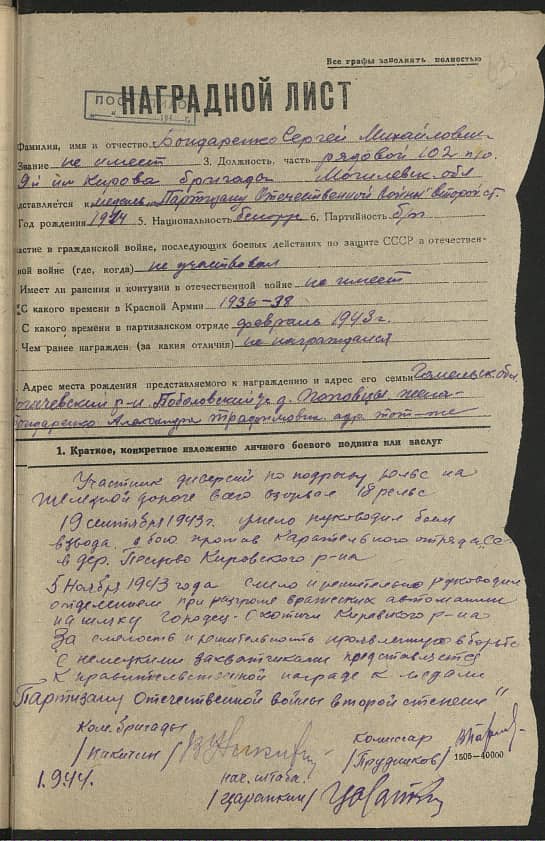 Все графы заполнять полностью
НАГРАДНОЙ ЛИСТ
Фамилия, имя и отчество Бондаренко Сергей Михайлович
Звание не имеет 3. Должность, часть рядовой 102 п/о
9й им Кирова бригады Могилевск. обл
дставляется к медаль "Партизану Отечественной войны" второй ст.
Год рождения 1914 5. Национальность белорус 6. Партийность б/п
астие в гражданской войне, последующих боевых действиях по защите СССР и отечествен-
ной войне (где, когда) не участвовал
Имеет ли ранения и контузии в отечественной войне не имеет
С какого времени в Красной Армии 1936-38
С какого времени в партизанском отряде февраль 1943 г.
Чем ранее награжден (за какия отличия) не награждался
Адрес места рождения представляемого к награждению и адрес его семьи Гомельск. обл
огачевский р-н Поболовский с/с д. жена-
ондаренко Александра адр. тот-же
1. Краткое, конкретное изложение личного боевого подвига или заслуг
Участник диверсий по подрыву рельс на
железной дороге всего взорвал 18 рельс
19 сентября 1943 г. умело руководил боем
взвода в бою против карательного отряда
в дер. Кировского р-на
5 Ноября 1943 года смело и решительно руководил
отделением при разгроме вражеских автомашин
на шляху Городец - Кировского р-на
За смелость и решительность проявленную в борьбе
с немецкими захватчиками представляется
к правительственной награде к медали
"Партизану Отечественной войны второй степени"
Ком. бригады
/Никитин/
Комиссар
/Прудников/
1505—40000
1.9.44.
нач. штаба
/Царапкин/